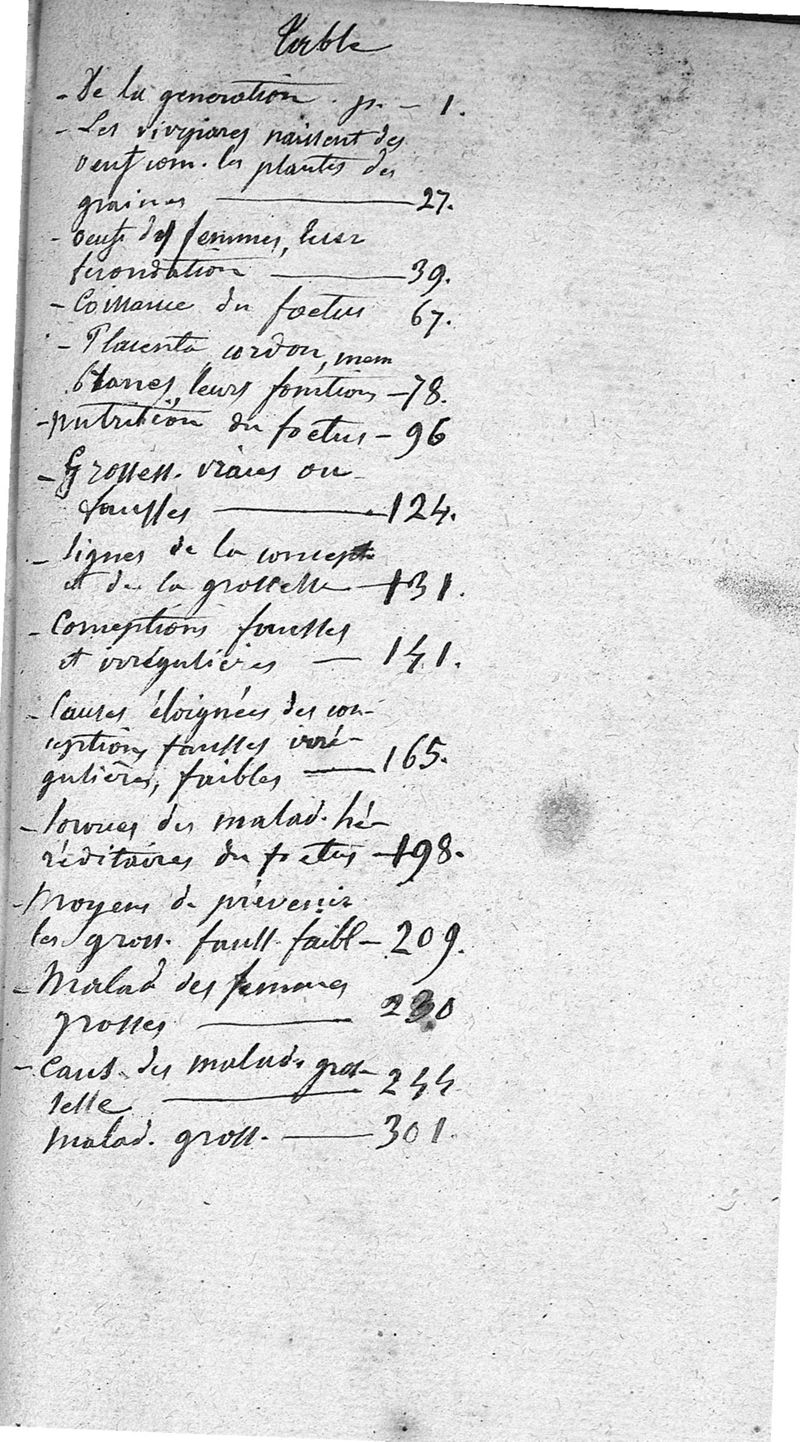 Table
- De la generation . p. - 1.
- Les vivipares naissent des
oeufs com. les plantes des
graines — 27.
- oeufs des femmes, leur
fecondation — 39.
- Coissance du foetus 67.
- Placenta cordon, mem
branes, leurs fonctions — 78.
- nutrition du foetus - 96
- Grossess. vraies ou
fausses — 124.
- Signes de la concept
et de la grossesse — 131.
- Conceptions fausses
et irrégulières — 141.
- Causes éloignées des con-
ceptions fausses irré-
gulières, faibles — 165.
- Sources des malad. hé-
réditaires du foetus — 198.
- Moyens de prévenir
les gross. fauss. faibl — 209.
- Malad des femmes
grosses — 230
- Caus. des malad. gros-
sesse — 244
malad. gross. — 301.